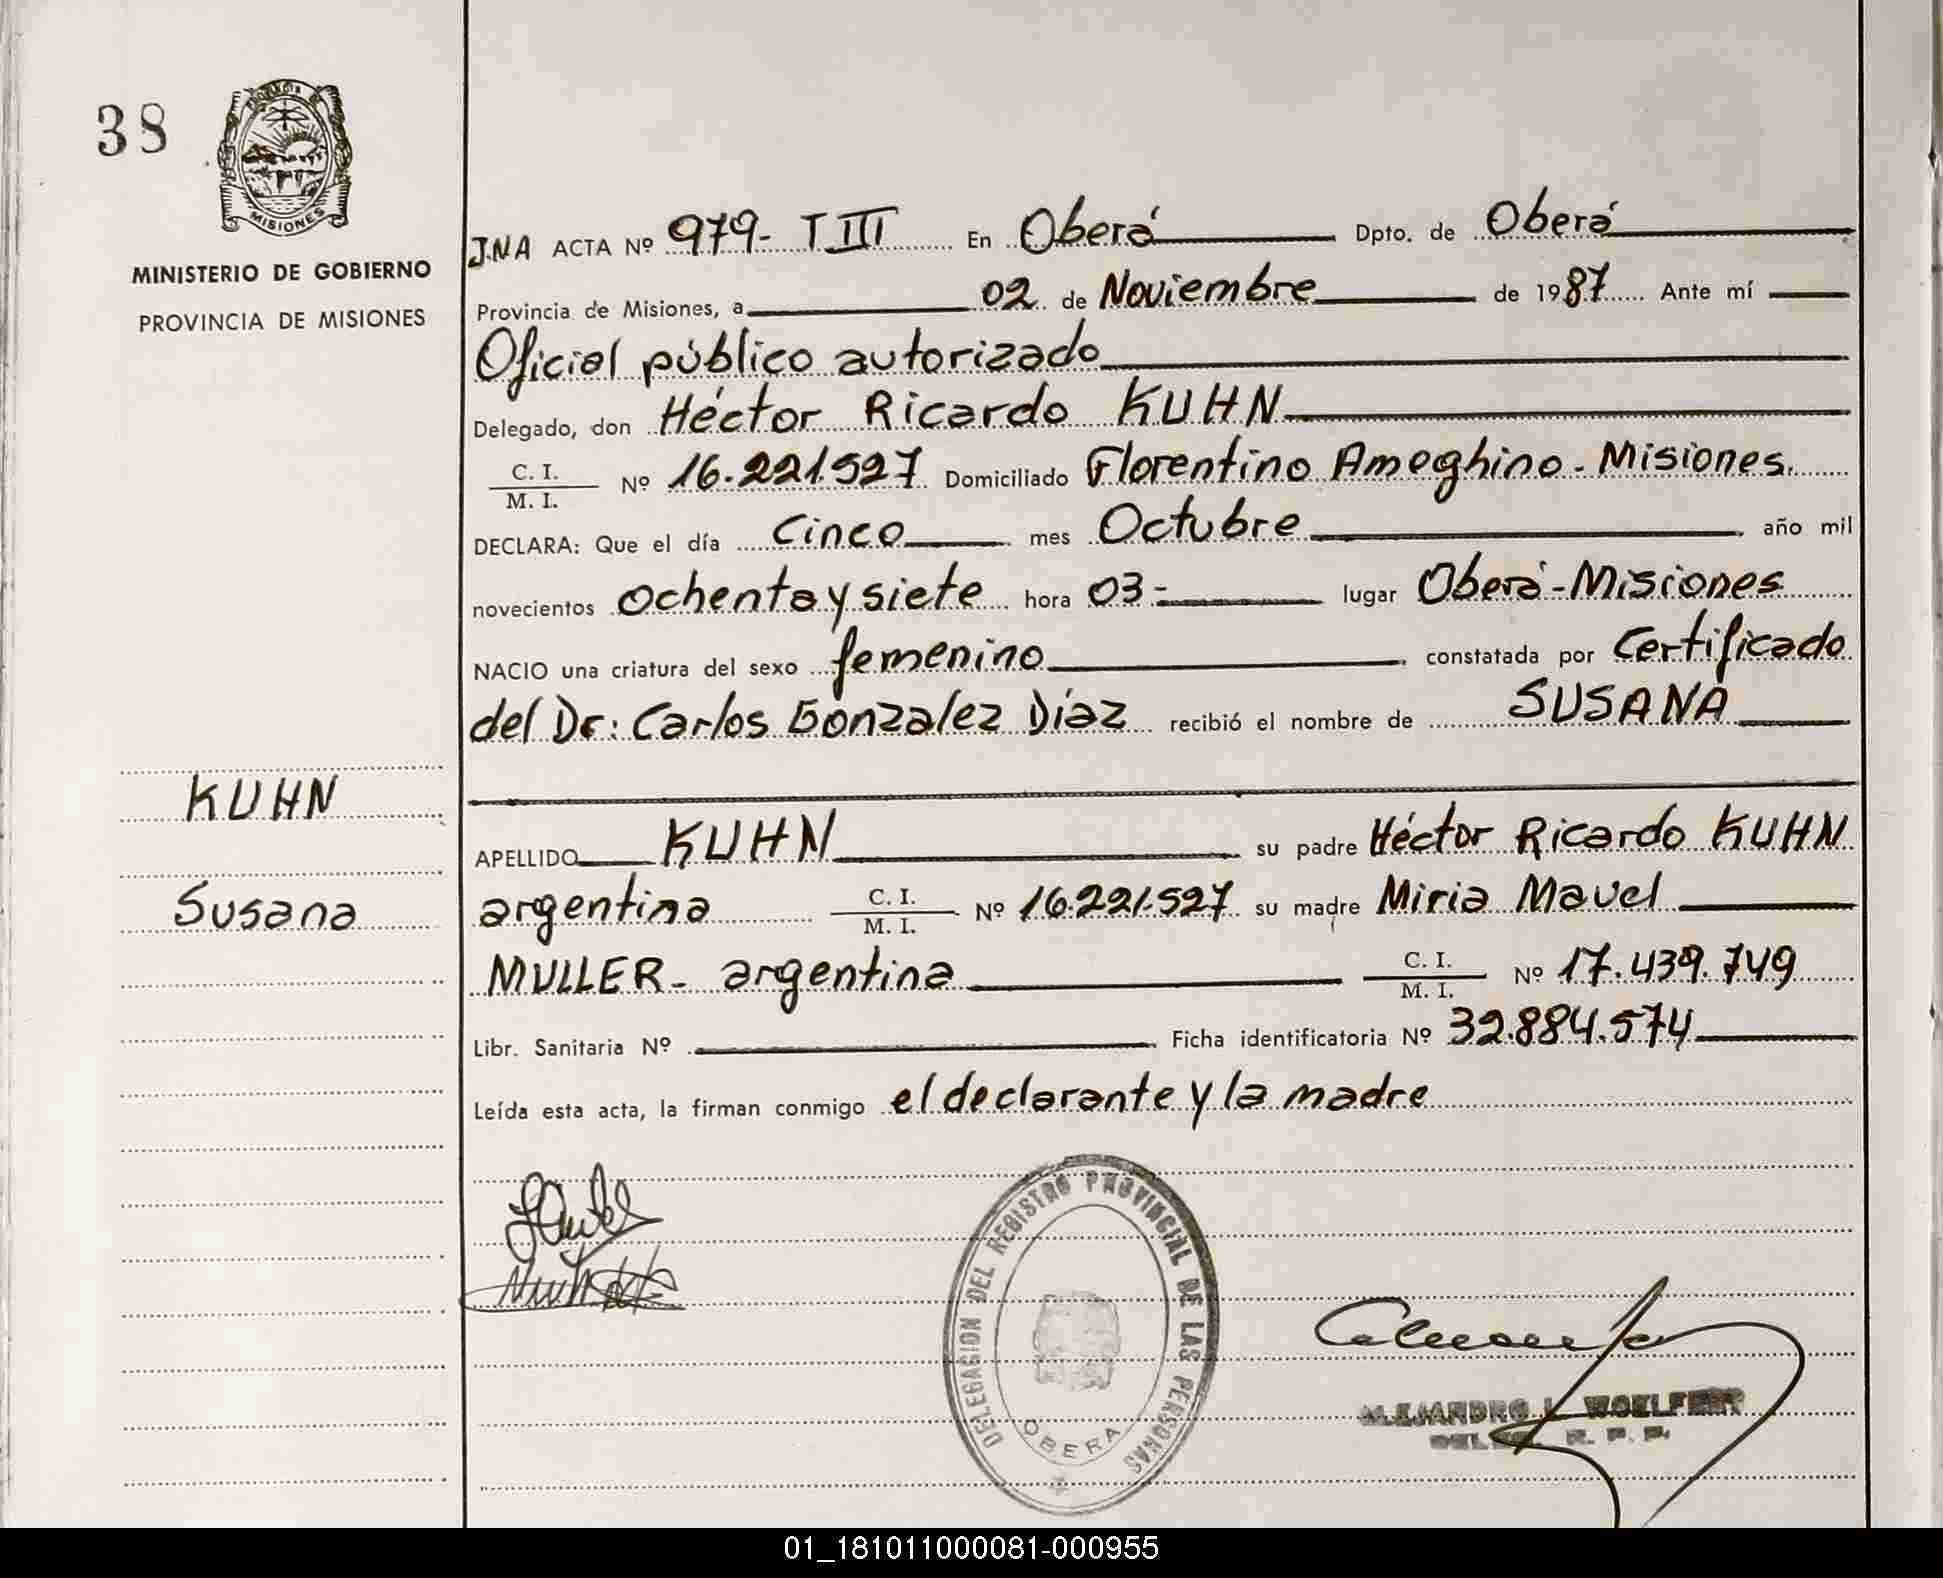 38
MISIONES
MINISTERIO DE GOBIERNO
PROVINCIA DE MISIONES
J.N.A ACTA Nº 979- T III En Oberá Dpto. de Oberá
Provincia de Misiones, a 02 de Noviembre de 1987 Ante mí
Oficial público autorizado
Delegado, don Héctor Ricardo KUHN
C. I.
M. I. Nº 16.221.527 Domiciliado Florentino Ameghino - Misiones.
DECLARA: Que el día Cinco mes Octubre año mil
novecientos ochenta y siete hora 03- lugar Oberá-Misiones
NACIO una criatura del sexo femenino constatada por Certificado
del Dr: Carlos Gonzalez Díaz recibió el nombre de SUSANA
KUHN
Susana
APELLIDO KUHN su padre Héctor Ricardo KUHN
argentina C. I.
M. I. Nº 16.221.527 su madre Miria Mavel
MULLER- argentina C. I.
M. I. Nº 17.439.749
Libr. Sanitaria Nº Ficha identificatoria Nº 32.884.574
Leída esta acta, la firman conmigo el declarante y la madre
DELEGASION DEL REGISTRO PROVINCIAL DE LAS PERSONAS
OBERA
ALEJANDRO L. WOELFERT
R. P. P.
01_181011000081-000955